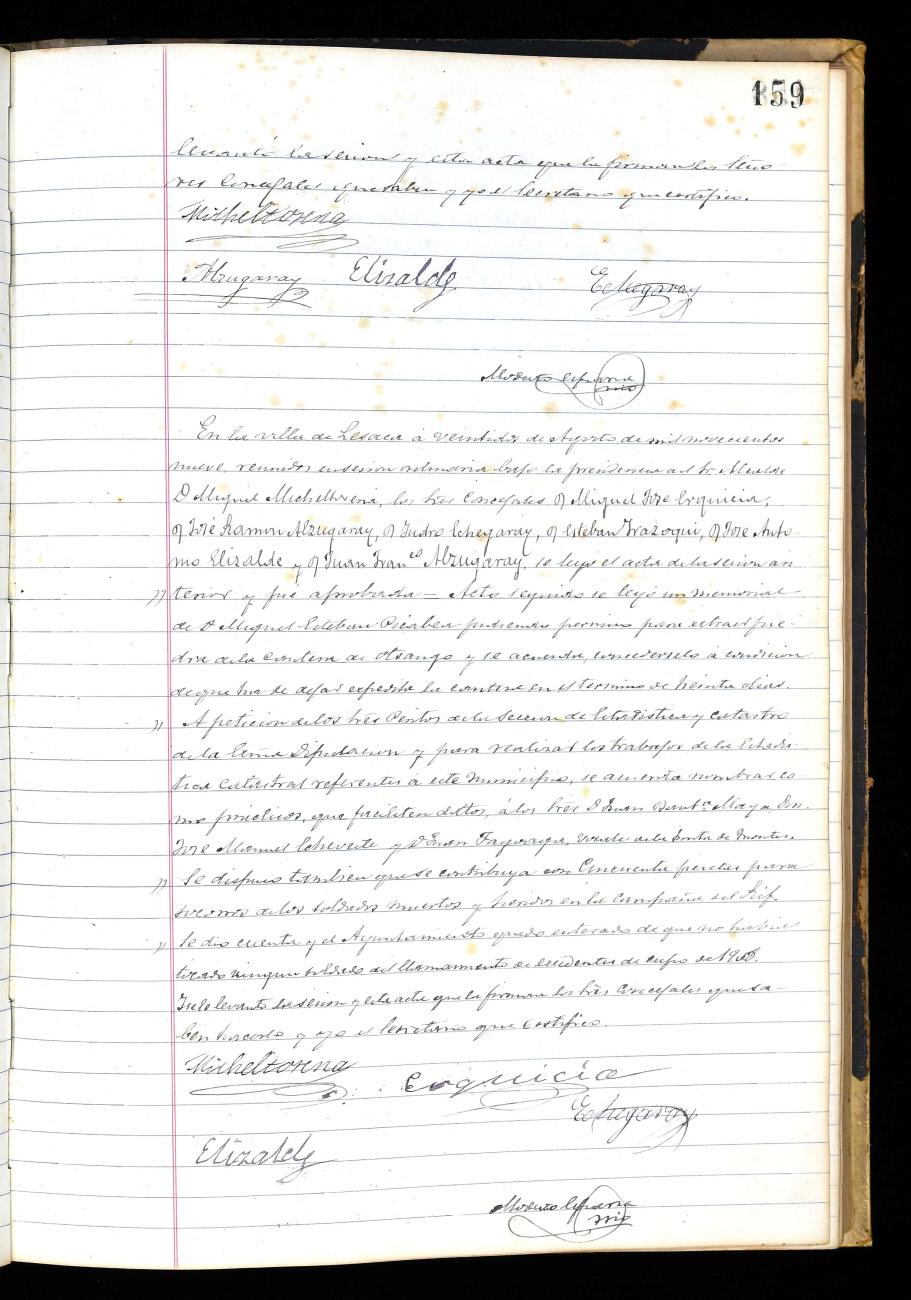 159
levantó la sesion y esta acta que la firman los Seño-
res Concejales que saben y yo el Secretario que certifico.
Micheltorena
Alzugaray Elizalde Echegaray
Modesto
En la villa de Lesaca á veintidos de Agosto de mil novecientos
nueve, reunidos en sesion ordinaria bajo la presidencia del Sr Alcalde
D Miguel Micheltorena, los Sres Concejales D Miguel José Erquicia,
D José Ramon Alzugaray, D Isidro Echegaray, D Esteban Irazoqui, D José Anto-
nio Elizalde y D Juan Franco Alzugaray, se leyó el acta de la sesion an
terior y fué aprobada — Acto seguido se leyó un memorial
de D Miguel Esteban Picabea pidiendo permiso para extraer pie-
dra de la cantera de Otsango y se acuerda, concederselo á condicion
de que ha de dejar expedita la cantera en el termino de treinta dias.
A peticion de los Sres Peritos de la Seccion de Estadistica y catastro
de la Excma Diputacion y para realizar los trabajos de la Estadis-
tica Catastral referentes á este Municipio, se acuerda nombrar co-
mo practicos, que faciliten datos, á los Sres D Juan Bauta Maya Don
José Manuel Echeveste y D Juan Fagoaga, Vocal de la Junta de Montes.
Se dispuso tambien que se contribuya con Cincuenta pesetas para
socorro de los soldados muertos y heridos en la Campaña del Rif.
Se dio cuenta y el Ayuntamiento quedó enterado de que no habia
tocado ningun soldado del llamamiento de excedentes de cupo de
Y se levantó la sesion y esta acta que la firman los Sres Concejales que sa-
ben hacerlo y yo el Secretario que certifico.
Micheltorena Erquicia
Echegaray
Elizalde
Modesto